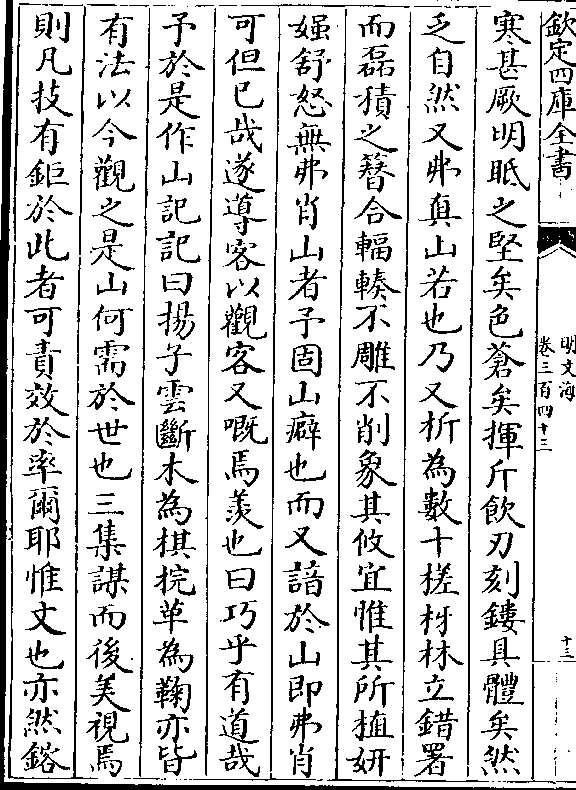 欽定四庫全書
明文海
卷三百四十三
十三
寒甚厥明眡之堅矣色蒼矣揮斤飲刃刻鏤具體矣然
乏自然又弗真山若也乃又析為數十槎枒林立錯署
而磊積之簮合輻輳不雕不削象其攸宜惟其所植妍
媸舒怒無弗肖山者予固山癖也而又諳於山即弗肖
可但已哉遂導客以觀客又嘅焉羨也曰巧乎有道哉
予於是作山記記曰揚子雲斷木為棋捖革為鞠亦皆
有法以今觀之是山何需於世也三集謀而後美視焉
則凡技有鉅於此者可責效於率爾耶惟文也亦然鎔